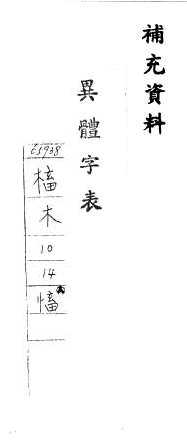 補充資料
異體字表
C5938
槒
木
10
14
慉